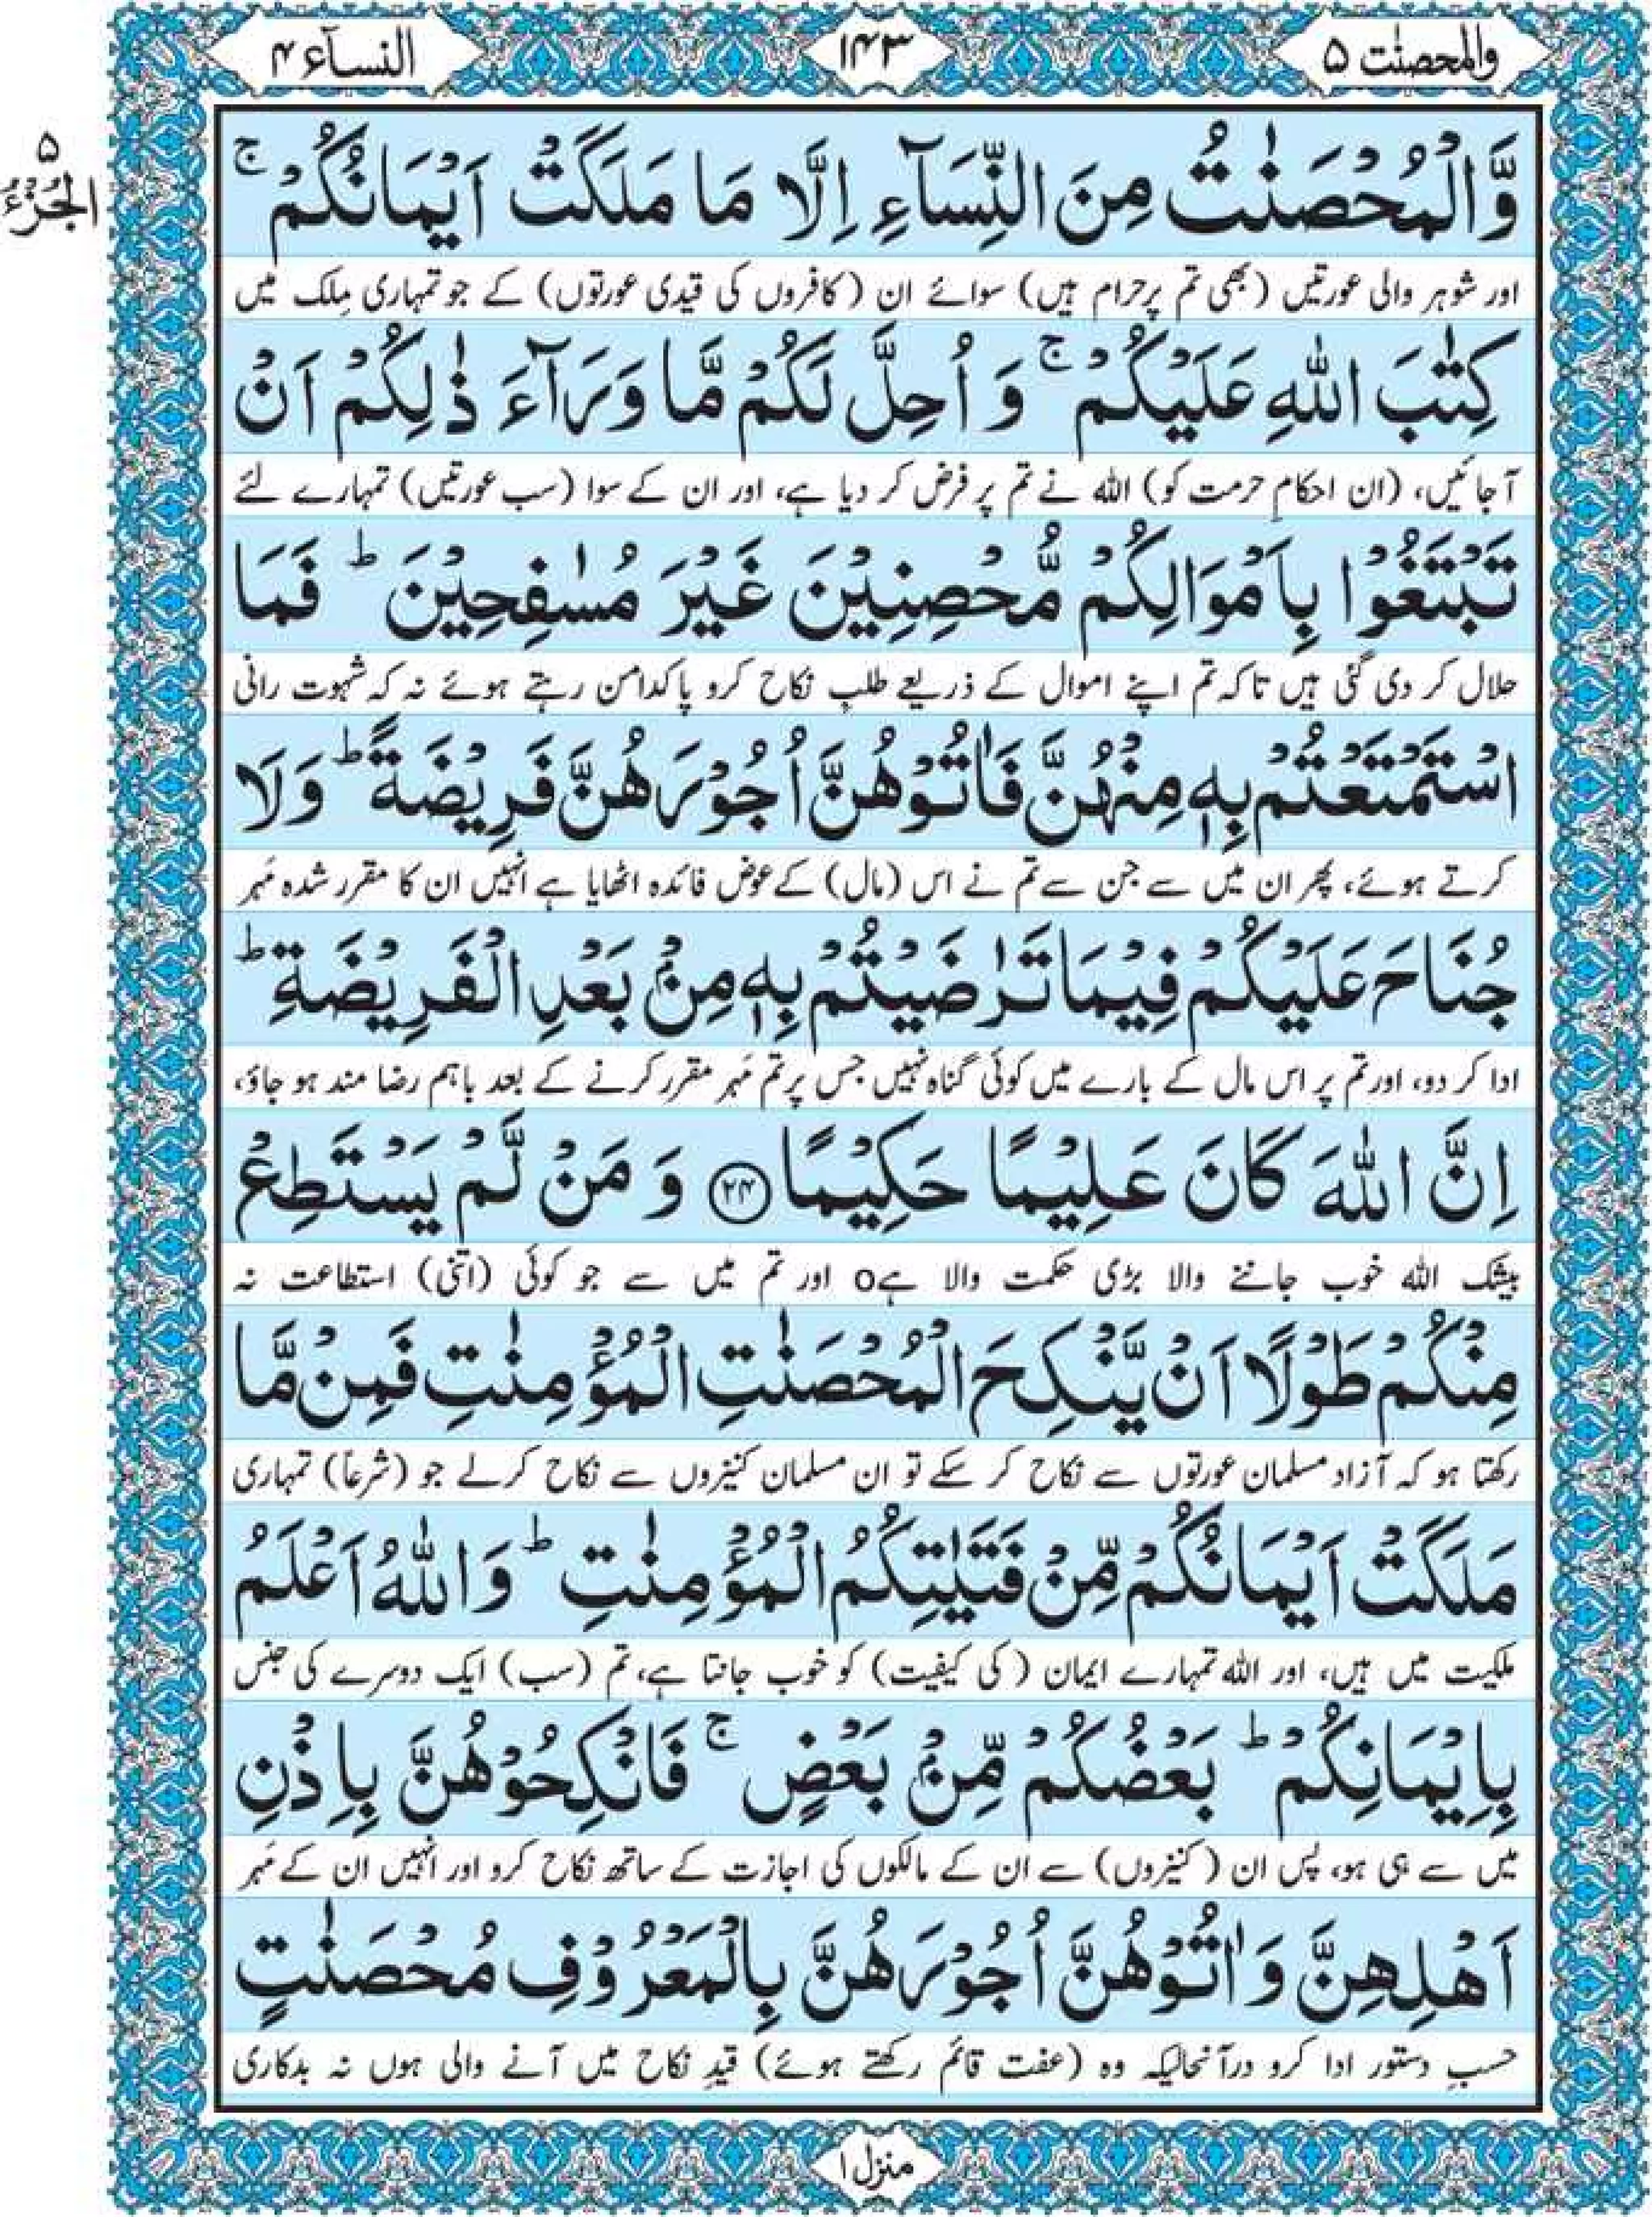 والمحصنٰت ۵
۱۴۳
النسآء ۴
۵
الجزء
وَّالْمُحْصَنٰتُ مِنَ النِّسَآءِ اِلَّا مَا مَلَكَتْ اَيْمَانُكُمْ ۚ
اور شوہر والی عورتیں (بھی تم پرحرام ہیں) سوائے ان (کافروں کی قیدی عورتوں) کے جو تمہاری مِلک میں
كِتٰبَ اللّٰهِ عَلَيْكُمْ ۚ وَ اُحِلَّ لَكُمْ مَّا وَرَآءَ ذٰلِكُمْ اَنْ
آجائیں، (ان احکامِ حرمت کو) اللہ نے تم پر فرض کر دیا ہے، اور ان کے سوا (سب عورتیں) تمہارے لئے
تَبْتَغُوْا بِاَمْوَالِكُمْ مُّحْصِنِيْنَ غَيْرَ مُسٰفِحِيْنَ ؕ فَمَا
حلال کر دی گئی ہیں تاکہ تم اپنے اموال کے ذریعے طلبِ نکاح کرو پاکدامن رہتے ہوئے نہ کہ شہوت رانی
اسْتَمْتَعْتُمْ بِهٖ مِنْهُنَّ فَاٰتُوْهُنَّ اُجُوْرَهُنَّ فَرِيْضَةً ؕ وَلَا
کرتے ہوئے، پھر ان میں سے جن سے تم نے اس (مال) کے عوض فائدہ اٹھایا ہے انہیں ان کا مقرر شدہ مَہر
جُنَاحَ عَلَيْكُمْ فِيْمَا تَرٰضَيْتُمْ بِهٖ مِنْۢ بَعْدِ الْفَرِيْضَةِ ؕ
ادا کر دو، اور تم پر اس مال کے بارے میں کوئی گناہ نہیں جس پر تم مَہر مقرر کرنے کے بعد باہم رضا مند ہو جاؤ،
اِنَّ اللّٰهَ كَانَ عَلِيْمًا حَكِيْمًا ﴿۲۴﴾ وَ مَنْ لَّمْ يَسْتَطِعْ
بیشک اللہ خوب جاننے والا بڑی حکمت والا ہےo اور تم میں سے جو کوئی (اتنی) استطاعت نہ
مِنْكُمْ طَوْلًا اَنْ يَّنْكِحَ الْمُحْصَنٰتِ الْمُؤْمِنٰتِ فَمِنْ مَّا
رکھتا ہو کہ آزاد مسلمان عورتوں سے نکاح کر سکے تو ان مسلمان کنیزوں سے نکاح کرلے جو (شرعاً) تمہاری
مَلَكَتْ اَيْمَانُكُمْ مِّنْ فَتَيٰتِكُمُ الْمُؤْمِنٰتِ ؕ وَاللّٰهُ اَعْلَمُ
ملکیت میں ہیں، اور اللہ تمہارے ایمان (کی کیفیت) کو خوب جانتا ہے، تم (سب) ایک دوسرے کی جنس
بِاِيْمَانِكُمْ ؕ بَعْضُكُمْ مِّنْۢ بَعْضٍ ۚ فَانْكِحُوْهُنَّ بِاِذْنِ
میں سے ہی ہو، پس ان (کنیزوں) سے ان کے مالکوں کی اجازت کے ساتھ نکاح کرو اور انہیں ان کے مَہر
اَهْلِهِنَّ وَاٰتُوْهُنَّ اُجُوْرَهُنَّ بِالْمَعْرُوْفِ مُحْصَنٰتٍ
حسبِ دستور ادا کرو درآنحالیکہ وہ (عفت قائم رکھتے ہوئے) قیدِ نکاح میں آنے والی ہوں نہ بدکاری
منزل ۱